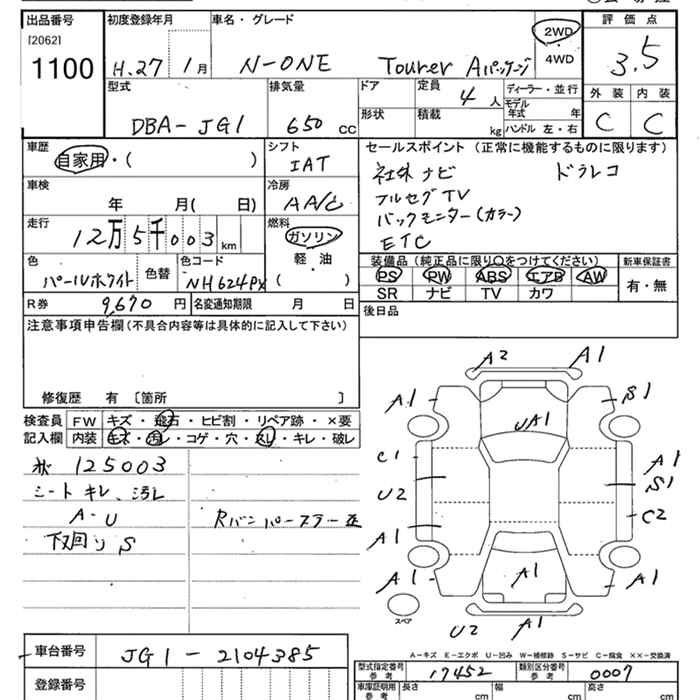 出品番号 初度登録年月 車名・グレード 評価点
[2062]
1100 H.27 1月 N-ONE Tourer Aパッケージ 2WD 3.5
4WD
型式 排気量 ドア 定員 4人 ディーラー・並行 外装 内装
DBA-JG1 650 cc 形状 積載 kg モデル年式 年 C C
ハンドル 左・右
車歴 シフト セールスポイント (正常に機能するものに限ります)
自家用・( ) IAT 社外ナビ ドラレコ
車検 冷房 フルセグTV
年 月( 日) AA/C バックモニター(カラー)
走行 燃料 ETC
12万5千003km ガソリン
軽・油
( )
装備品 (純正品に限り○をつけてください) 新車保証書
色 色替 色コード PS PW ABS エアB AW 有・無
パールホワイト NH624PX SR ナビ TV カワ
R券 9,670 円 名変通知期限 月 日 後日品
注意事項申告欄(不具合内容等は具体的に記入して下さい)
修復歴 有 〔箇所 〕
検査員 FW キズ・飛石・ヒビ割・リペア跡・×要
記入欄 内装 キズ・汚れ・コゲ・穴・スレ・キレ・破レ
125003
シート キレ、汚レ
A・U Rバンパーステー歪
下回りS
A2 A1
A1 S1
UA1
C1 A1
U2 S1
C2
A1
A1 A1 A1
スペア
U2 A1
A-キズ E-エクボ U-凹み W-補修跡 S-サビ C-腐食 ××-交換済
車台番号 JG1-2104385
型式指定番号 参考 17452 類別区分番号 参考 0007
登録番号
車庫証明用 参考 長さ cm 幅 cm 高さ cm